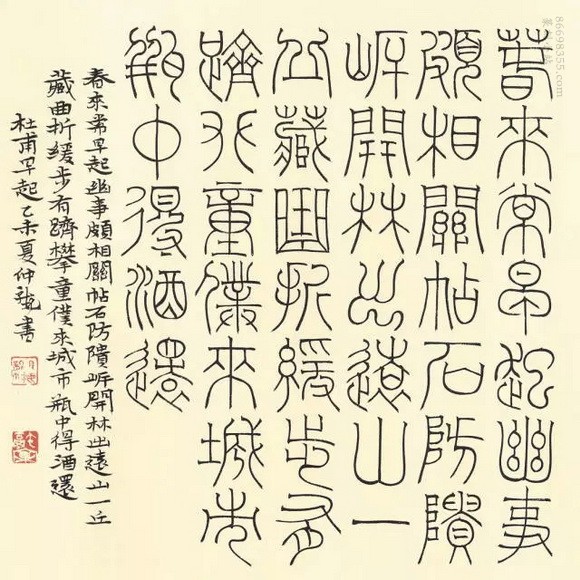 春來常早起幽事
頗相關帖石防隤
岸開林出遠山一
丘藏曲折緩步有
躋攀童僕來城市
瓶中得酒還
春來常早起幽事頗相關帖石防隤岸開林出遠山一丘
藏曲折緩步有躋攀童僕來城市瓶中得酒還
杜甫早起乙未夏仲書
86698355.com